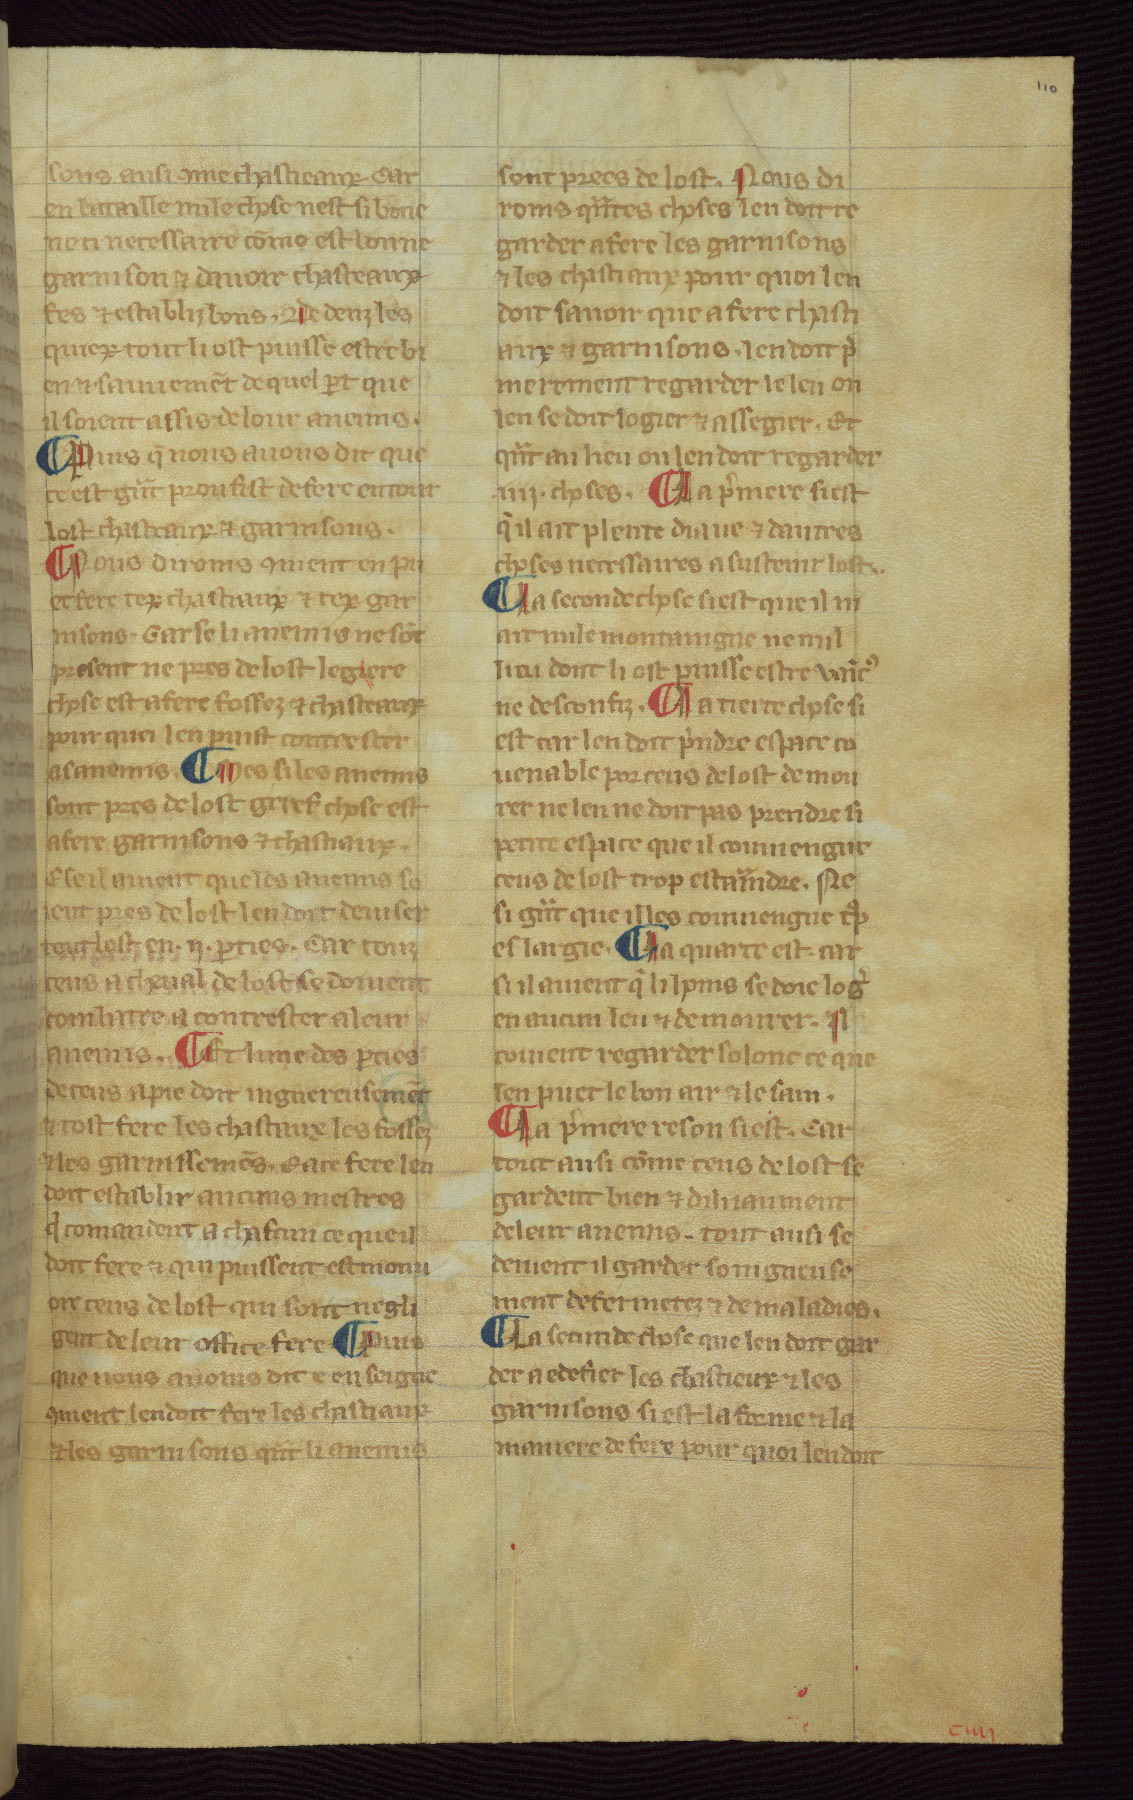 110
sons ausi ꝯme chastieaux. Car
en bataille nule chose nest si bone
ne ci necessaire cõme est bonne
garnison ⁊ davoir chasteaux
fes ⁊ establiz bons. dedenz les
quiex tout li ost puisse estre bi
en ⁊ sauuemẽt de quel ꝑt que
il soient assis de lour anemis.
¶ Puis q̃ nous auons dit que
ce est gũt proufist de fere entour
lost chasteaux ⁊ garnisons.
¶ Nous dirons ꝯment en pu
et fere tex chastiaux ⁊ tex gar
nisons. Car se li anemis ne sõt
present ne pres de lost legiere
chose est a fere fossez ⁊ chasteaux
pour quoi len puist contrester
as anemis. ¶ Mes si les anemis
sont pres de lost grief chose est
a fere garnisons ⁊ chastiaux.
E se il auient que les anemis so
ient pres de lost len doit deuiser
tout lost en .ij. ꝑties. Car touz
ceus a cheual de lost se doiuent
combatre a contrester a leur
anemis. ¶ Et lune des ꝑties
de ceus a pie doit uiguereusemẽt
⁊ tost fere les chastiaux les fossez
⁊ les garnissemẽs. Eace fere len
doit establir aucuns mestres
q̃ comandent a chascun ce que il
doit fere ⁊ qui puissent estmouu
oir ceus de lost qui sont negli
gent de leur office fere ¶ Puis
que nous auons dit e enseigne
ꝯment len doit fere les chastiaux
⁊ les garnisons qũt li anemis
sont prees de lost. Nous di
rons qũtes choses len doit re
garder a fere les garnisons
⁊ les chastiaux pour quoi len
doit sauoir que a fere chasti
aux ⁊ garnisons. len doit p̃
merement regarder le leu ou
len se doit logier ⁊ assegier. Et
qũt au lieu ou len doit regarder
.iiij. choses. ¶ La p̃mere si est
q̃ il ait plente diaue ⁊ dautres
choses necessaires a sustenir lost.
¶ La seconde chose si est que il ni
ait nule montaingne ne nul
lieu dont li ost puisse estre vaĩc᾽
ne desconfiz. ¶ La tierte chose si
est car len doit p̃ndre espace co
uenable por ceus de lost demou
rer ne len ne doit pas prendre si
petite espace que il couuengne
ceus de lost trop estaĩndre. Ne
si gũt que il les couuengne tp̃
eslargie. ¶ La quarte est. car
si il auient q̃ li lyons se doie log̃
en aucun leu ⁊ demourer. Il
couient regarder solonc ce que
len puet le bon air ⁊ le sain.
¶ La p̃mere reson si est. Car
tout ausi cõme ceus de lost se
gardent bien ⁊ diliiaument
de leur anemis. tout ausi se
deuent il garder soingneuse
ment defermetez ⁊ de maladies.
¶ La secunde chose que len doit gar
der a edefier les chastieux ⁊ les
garnisons si est la forme ⁊ la
maniere de fere pour quoi len doit
ciiij